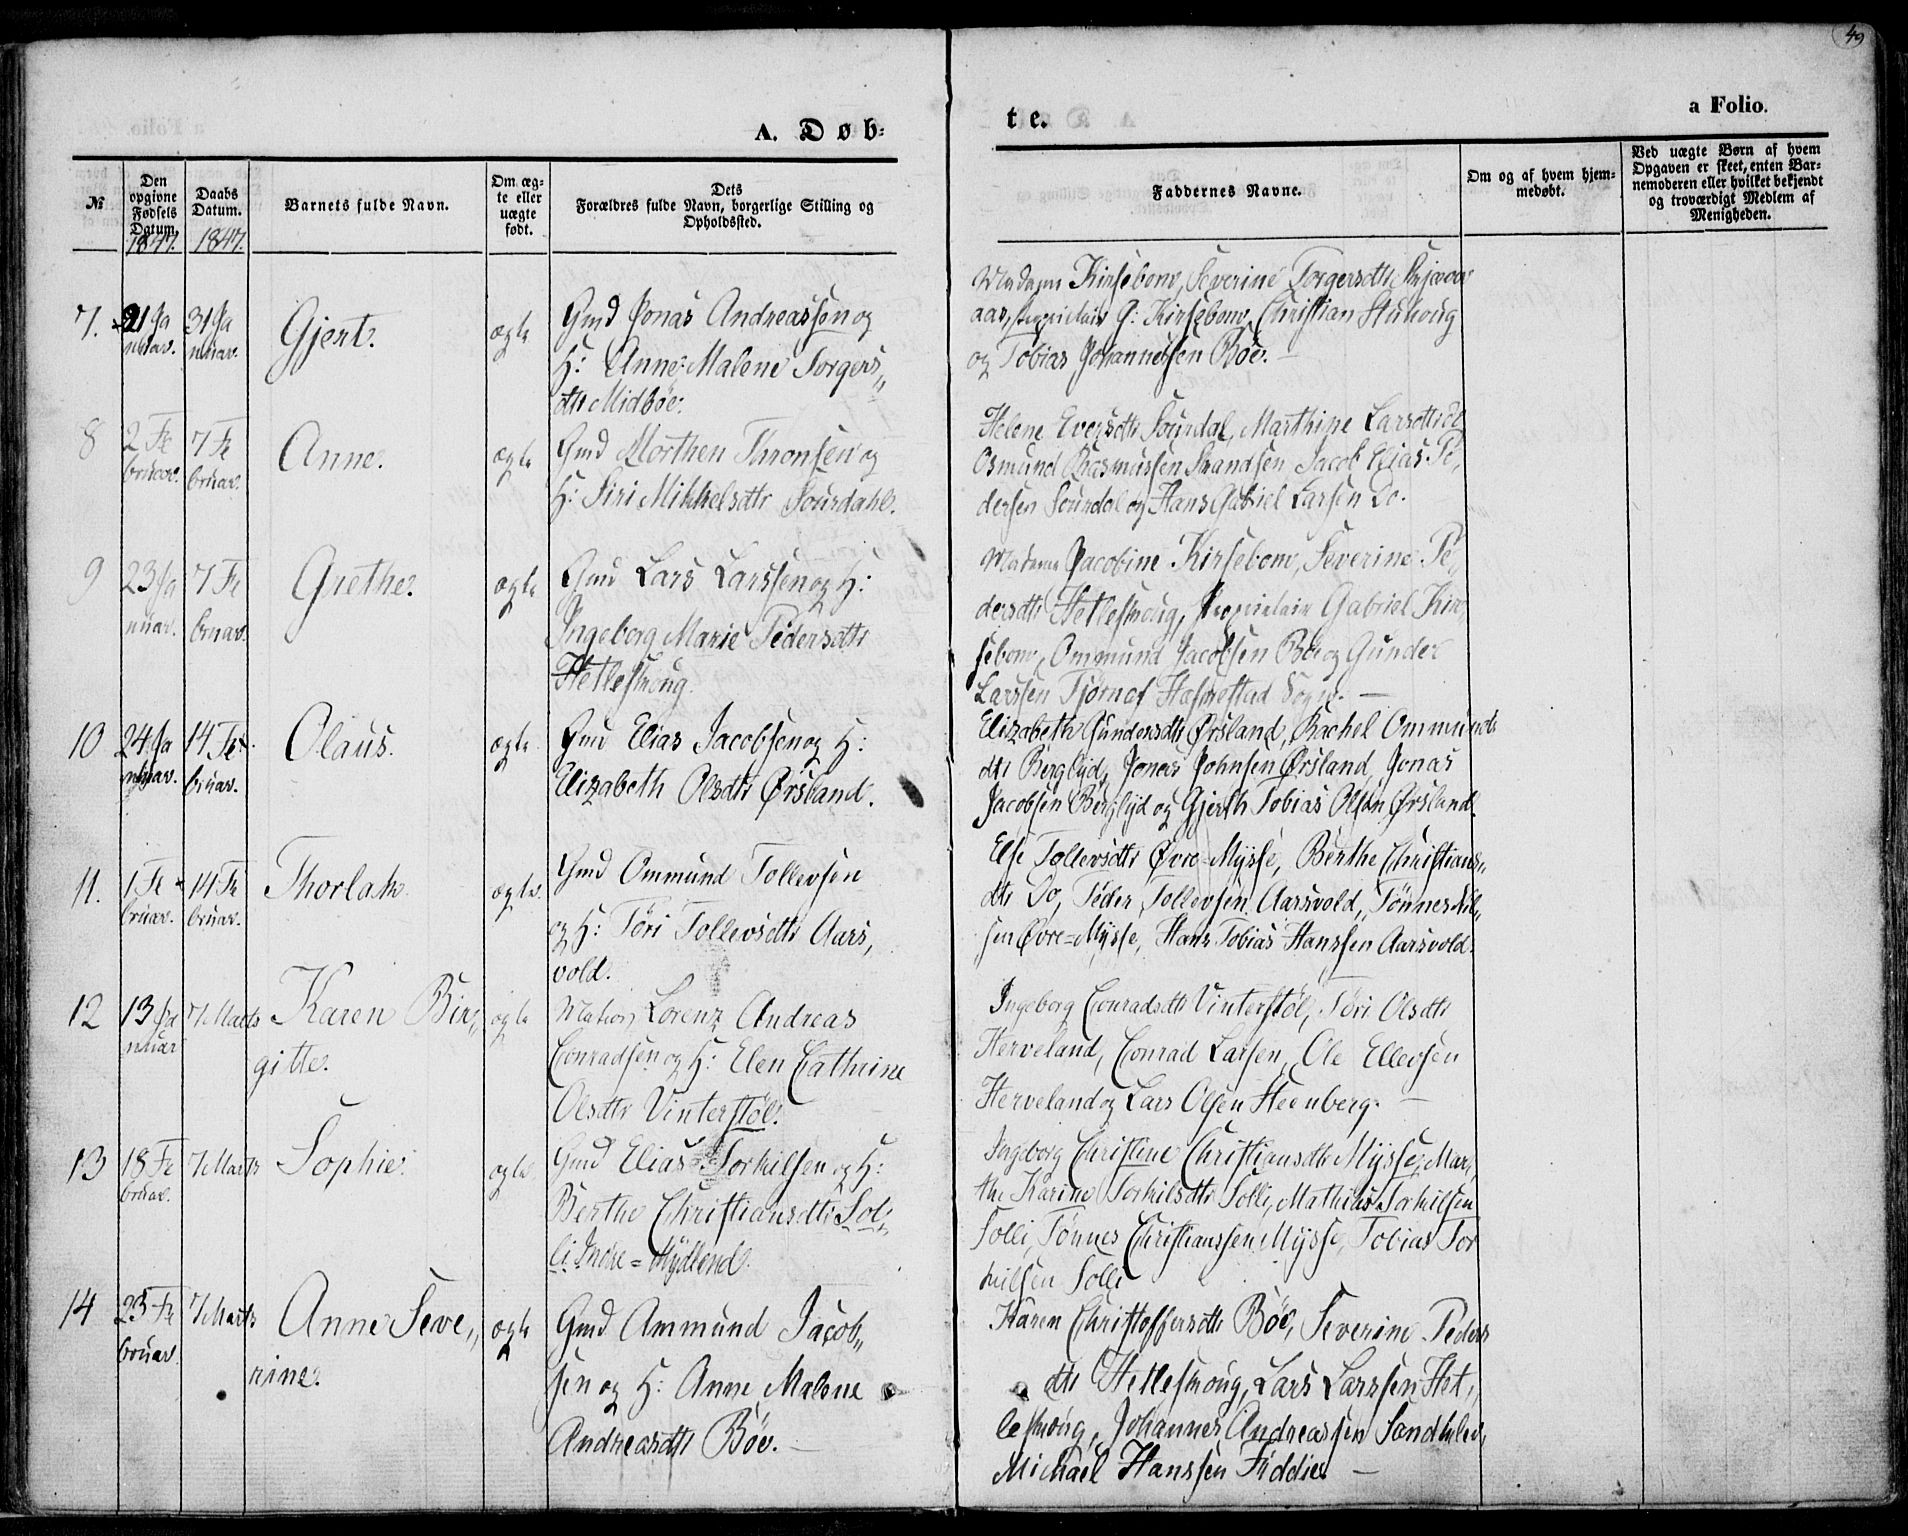 49
a Folio.
A. Døb-
te.
№
Den opgivne Fødsels Datum.
1847.
Daabs Datum.
1847.
Barnets fulde Navn.
Om æg-
te eller
uægte
født.
Dets
Forældres fulde Navn, borgerlige Stilling og
Opholdssted.
Faddernes Navne.
Om og af hvem hjem-
medøbt.
Ved uægte Børn af hvem
Opgaven er skeet, enten Bar-
nemoderen eller hvilket bekjendt
og troværdigt Medlem af
Menigheden.
7. 21 Ja 31 Ja
nuar. nuar.
Gjert.
ægte
Gmd Jonas Andreassen og
H: Anne Malene Torgers„
dtr Midbøe.
Madame Kirsebom, Severine Torgersdtr
aas, G: Kirsebom, Christian
og Tobias Johannessen Bøe. —
8 2 Fe 7 Fe
bruar. bruar.
Anne.
ægte
Gmd Morthen Thronsen og
H: Siri Mikkelsdtr Sourdahl.
Helene Eversdtr Sourdal, Marthine Larsdtr
Osmund Rasmussen Strandsen Jacob Elias Pe„
dersen Sourdal og Hans Gabriel Larsen Do.
9 23 Ja 7 Fe
nuar. bruar.
Grethe.
ægte
Gmd Lars Larssen og H:
Ingeborg Marie Pedersdtr
Hetleskoug.
Madame Jacobine Kirsebom, Severine Pe„
dersdtr Hetleskoug, Proprietair Gabriel Kir„
sebom, Ommund Jacobsen Bøe og Gunder
Larssen Tjørn af Hafnestad Sogn. —
10 24 Ja 14 Fe
nuar. bruar.
Olaus.
ægte.
Gmd Elias Jacobsen og H:
Elizabeth Olsdtr Ørsland.
Elizabeth Gundersdtr Ørsland, Rachel Ommunds
dtr Berglyd, Jonas Johnsen Ørsland, Jonas
Jacobsen Berglyd og Gjerth Tobias Olsen Ørsland.
11. 1 Fe 14 Fe
bruar. bruar.
Thorlak.
ægte.
Gmd Ommund Tollevsen
og H: Töri Tollevsdtr Aars„
vold.
Else Tollevsdtr Øvre-Mysse, Berthe Christians„
dtr Do, Peder Tollevsen Aarsvold, Tønnes Nil„
sen Øvre-Mysse, Hans Tobias Hanssen Aarsvold.
12 13 Ja 7 Marts
nuar
Karen Bir„
gitte.
ægte
Matros Lorenz Andreas
Conradsen og H: Elen Cathrine
Olsdtr Vinterstøl.
Ingeborg Conradsdtr Vinterstøl, Töri Olsdtr
Herveland, Conrad Larsen, Ole Ellevsen
Herveland og Lars Olsen Steenberg. —
13 18 Fe 7 Marts
bruar.
Sophie.
ægte.
Gmd Elias Torkilsen og H:
Berthe Christiansdtr Sol„
li Indre = Mydland.
Ingeborg Christine Christiansdtr Mysse, Mar„
the Karine Torkilsdtr Solli, Mathias Torkilsen
Solli, Tønnes Christianssen Mysse, Tobias Tor
kilsen Solli
14 23 Fe 7 Marts
bruar
Anne Seve„
rine.
ægte
Gmd Ammund Jacob„
sen og H: Anne Malene
Andreasdtr Bøe. —
Karen Christoffersdtr Bøe, Severine Peders
dtr Hetleskoug, Lars Larssen Het„
leskoug, Johannes Andreassen Sandklev,
Michael Hanssen Fiddie. —